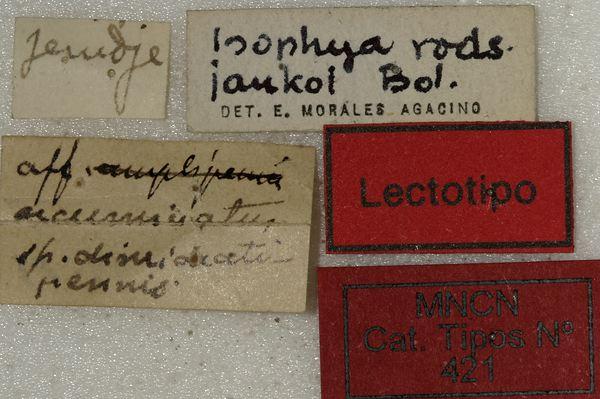 Jendje
Isophya rods.
jankoi Bol.
DET. E. MORALES AGACINO
aff. amplipennis
acuminatus
sp. dimidiati
pennis.
Lectotipo
MNCN
Cat. Tipos Nº
421